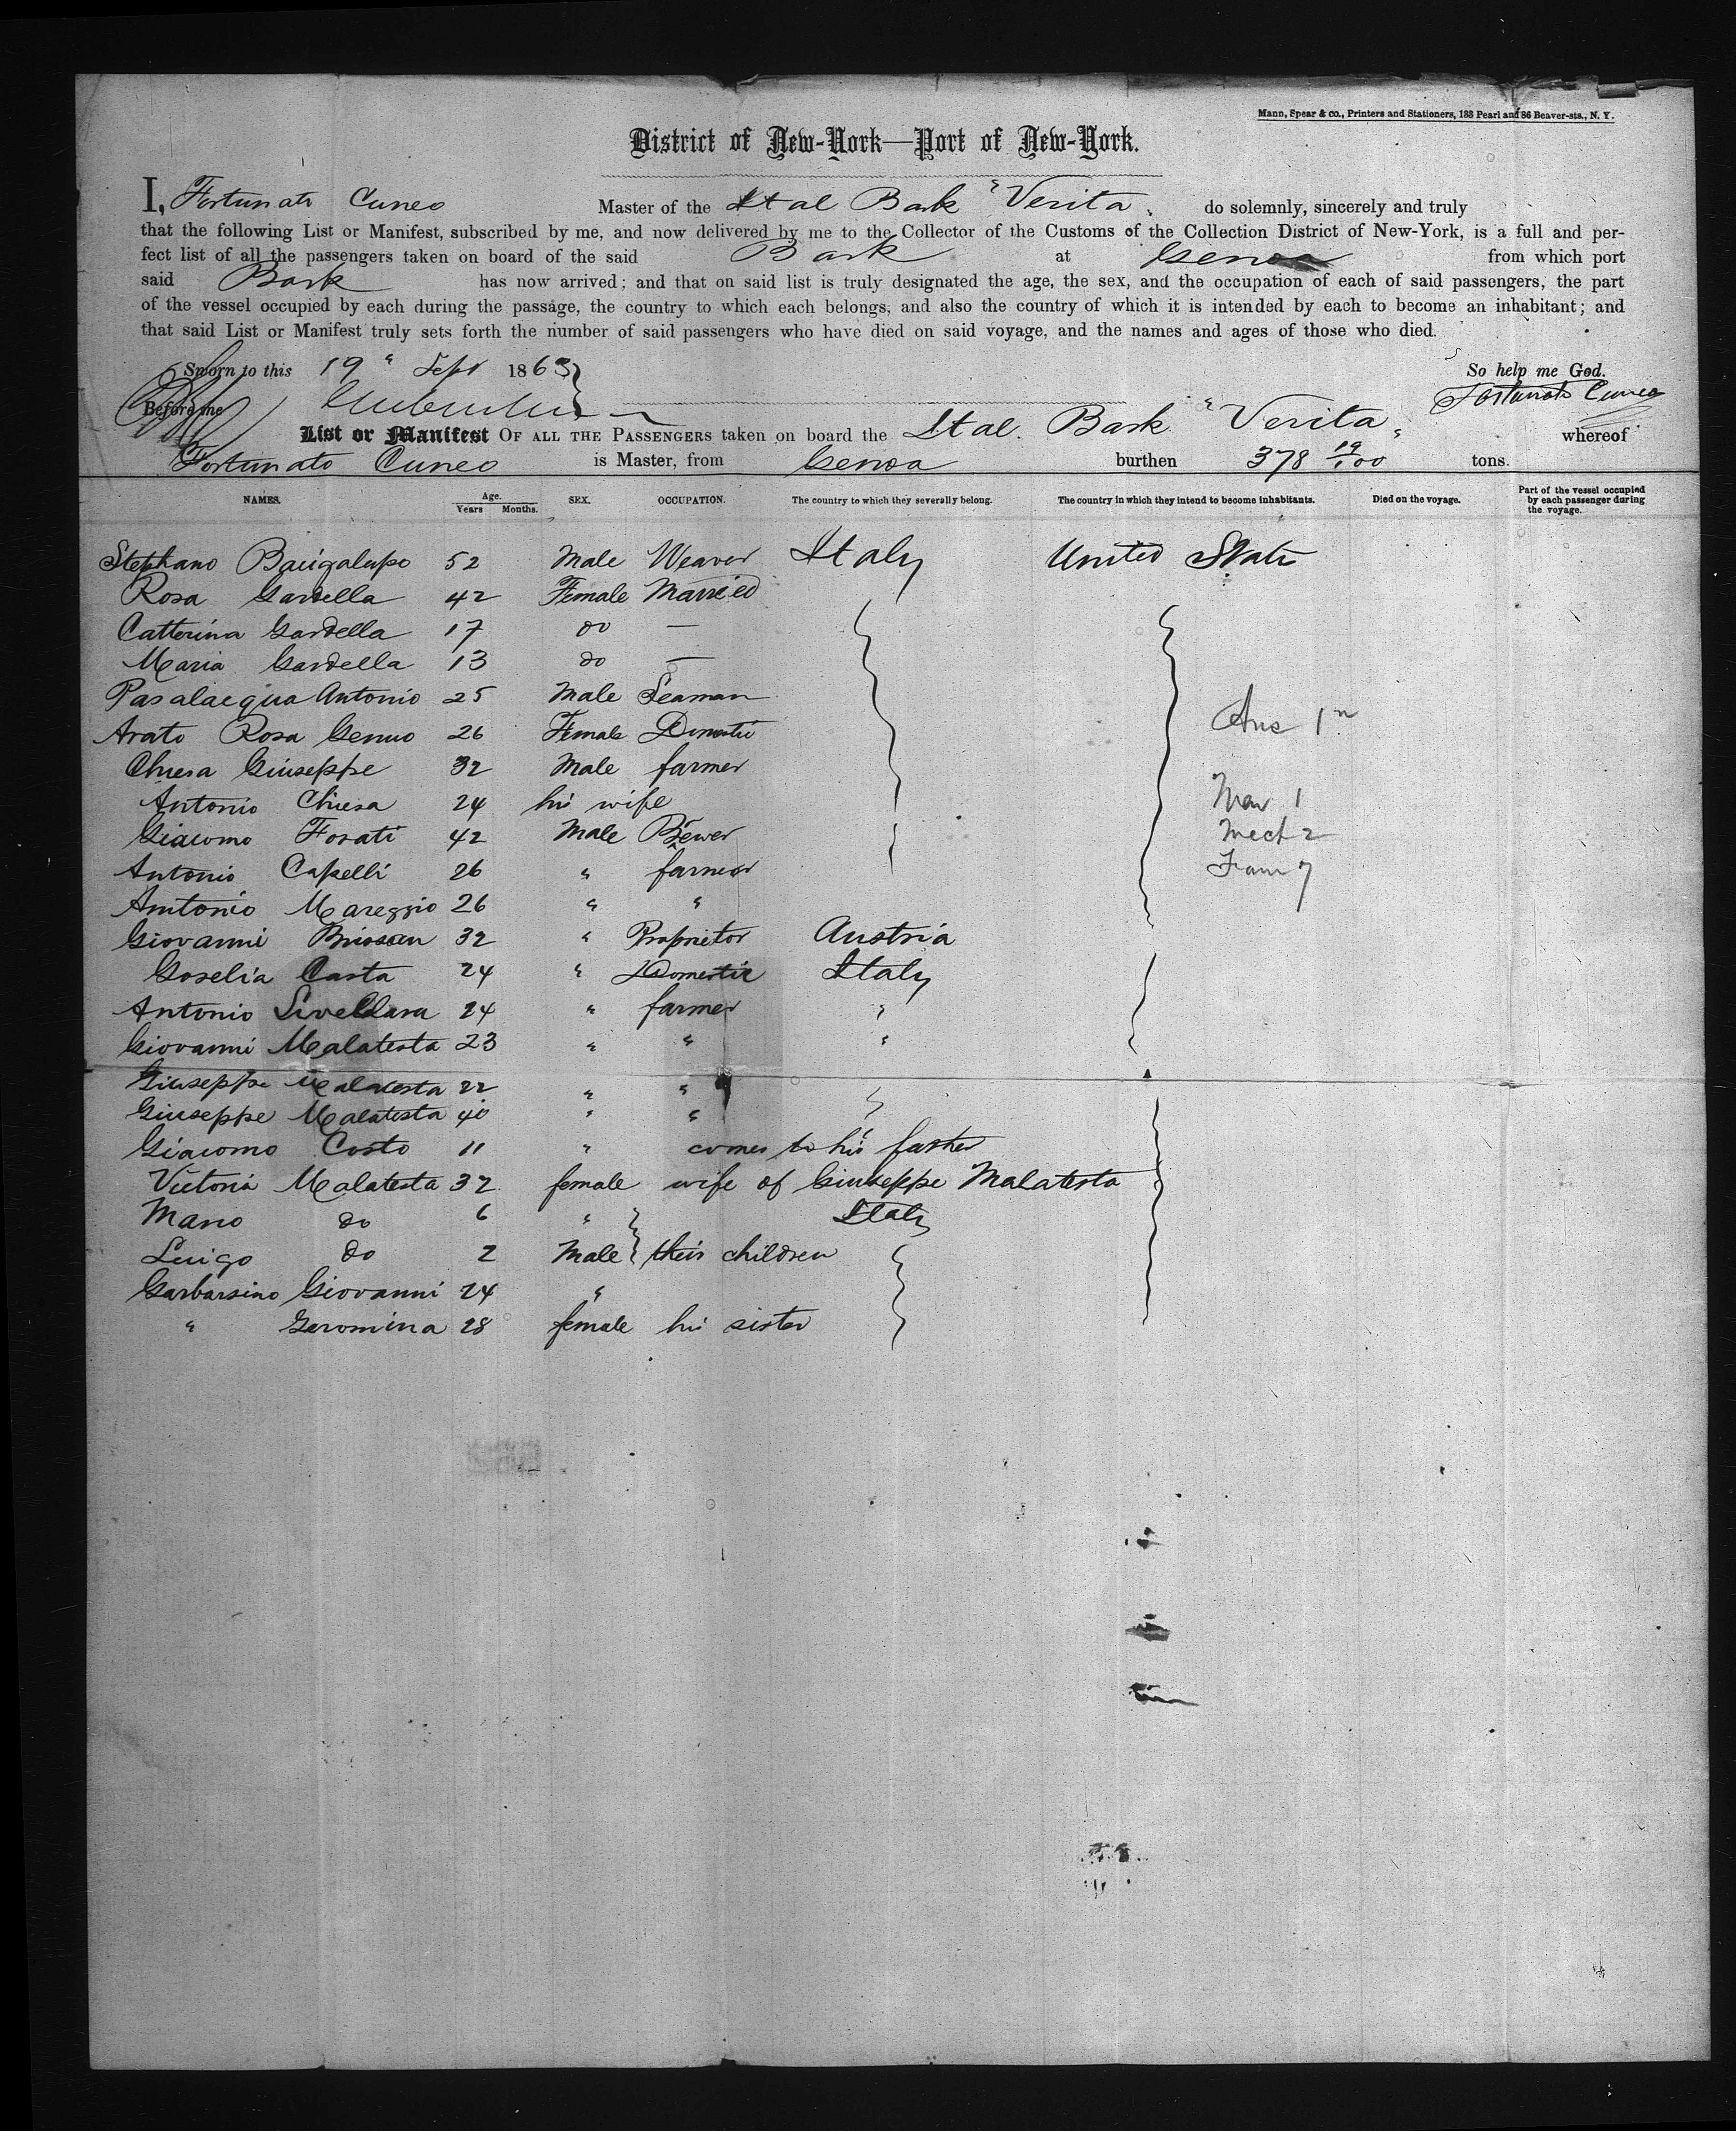 Mann, Spear & co., Printers and Stationers, 188 Pearl and 86 Beaver-sts., N. Y.
District of New-York—Port of New-York.
I, Fortunato Cuneo Master of the Ital Bark "Verita" do solemnly, sincerely and truly
that the following List or Manifest, subscribed by me, and now delivered by me to the Collector of the Customs of the Collection District of New-York, is a full and per-
fect list of all the passengers taken on board of the said Bark at Genoa from which port
said Bark has now arrived; and that on said list is truly designated the age, the sex, and the occupation of each of said passengers, the part
of the vessel occupied by each during the passage, the country to which each belongs, and also the country of which it is intended by each to become an inhabitant; and
that said List or Manifest truly sets forth the number of said passengers who have died on said voyage, and the names and ages of those who died.
Sworn to this 19" Sept 1863 So help me God.
Before me Fortunato Cuneo
List or Manifest OF ALL THE PASSENGERS taken on board the Ital. Bark "Verita" whereof
Fortunato Cuneo is Master, from Genoa burthen 378 19/100 tons.
NAMES. Age. Years Months. SEX. OCCUPATION. The country to which they severally belong. The country in which they intend to become inhabitants. Died on the voyage. Part of the vessel occupied by each passenger during the voyage.
Stephano Bacigalupo 52 Male Weaver Italy United State
Rosa Gardella 42 Female Married
Catterina Gardella 17 do —
Maria Gardella 13 do —
Pasalacqua Antonio 25 Male Seaman
Arato Rosa Genuo 26 Female Domestic
Chiesa Giuseppe 32 Male farmer
Antonio Chiesa 24 his wife Mar 1
Giacomo Fosati 42 Male Brewer Mech 2
Antonio Capelli 26 " farmer Farm 7
Antonio Mareggio 26 " "
Giovanni 32 " Proprietor Austria
Goselia Casta 24 " Domestic Italy
Antonio Livellara 24 " farmer "
Giovanni Malatesta 23 " " "
Giuseppe Malatesta 22 " "
Giuseppe Malatesta 40 " "
Giacomo Costo 11 " comes to his father
Victoria Malatesta 32 female wife of Giuseppe Malatesta
Mario do 6 " Italy
Luigo do 2 Male their children
Garbarsino Giovanni 24 "
" Geromina 28 female his sister